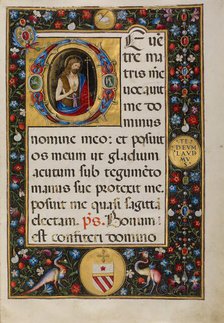 E ven
tre ma
tris me
vocavit
me do
minus
nomine meo: et posuit
os meum ut gladium
acutum sub tegumēto
manus suę protexit me.
posuit me quasi sagittā
electam. p̄s. Bonum
est confiteri domino
TE
DEVM
LAVD
MVS